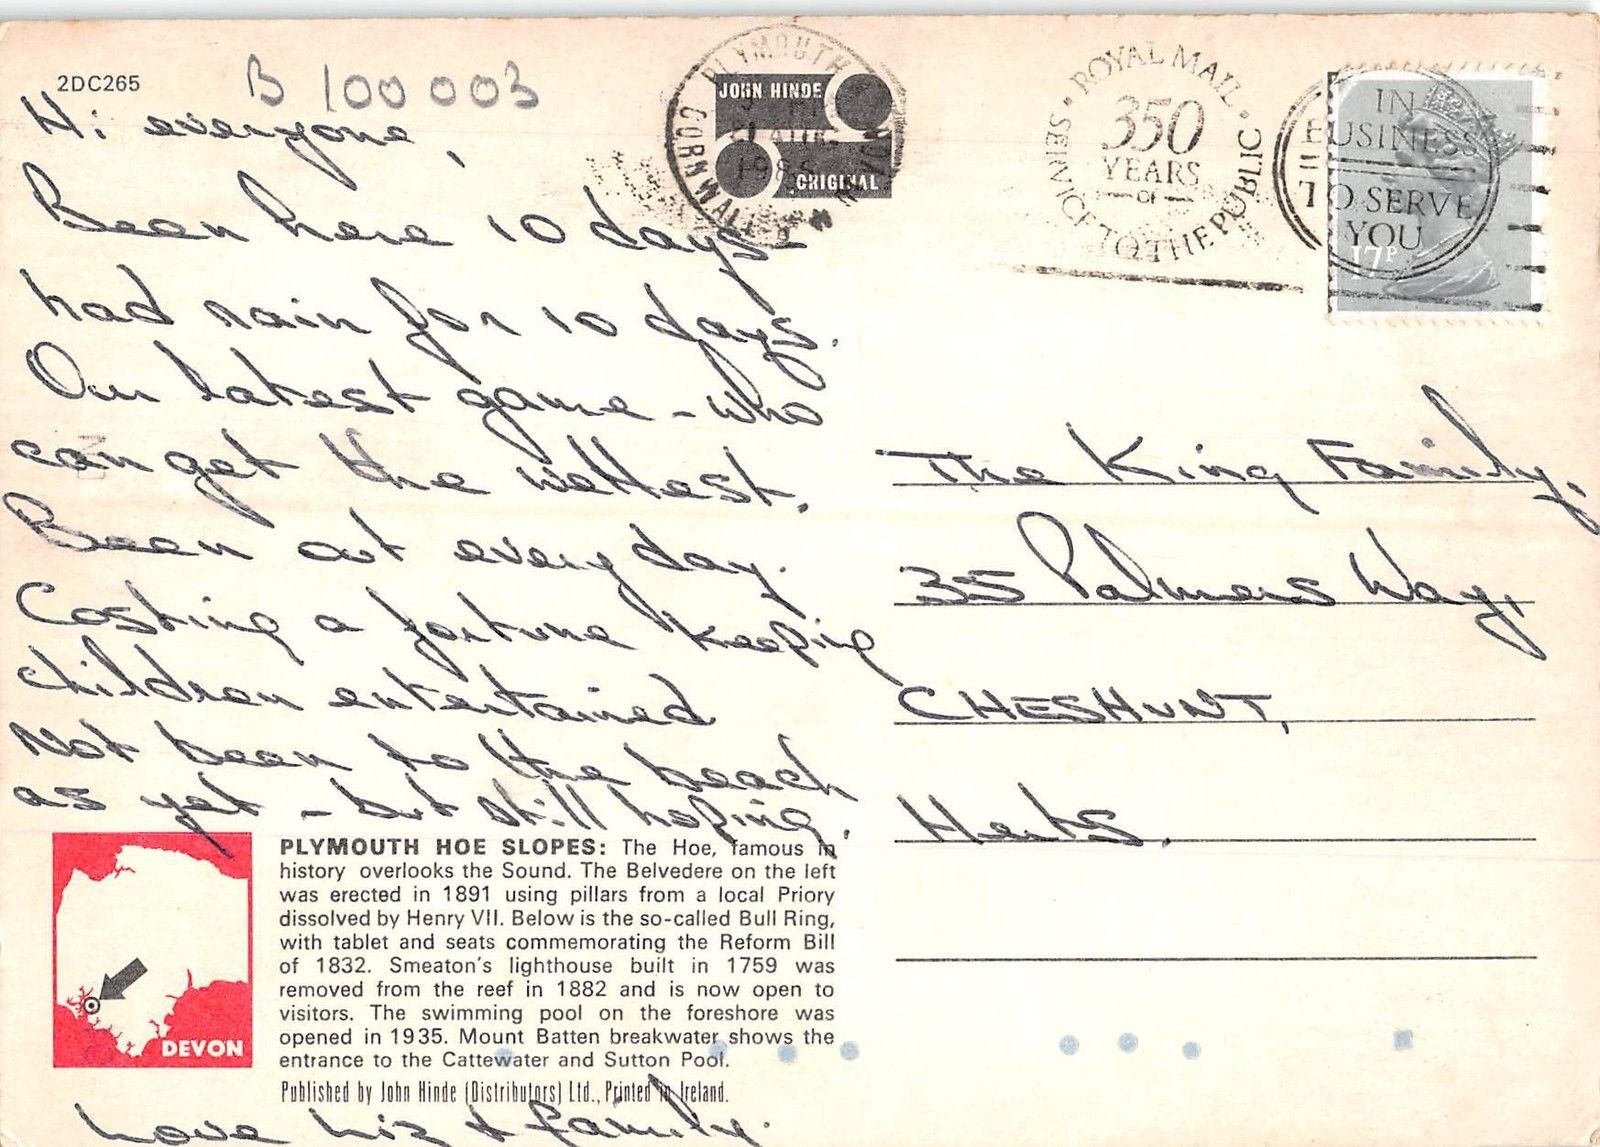 2DC265
B 100 003
Hi everyone,
Been here 10 days -
had rain for 10 days.
Our latest game - who
can get the wettest.
Been out every day.
Costing a fortune keeping
children entertained
Not been to the beach
as yet - but still hoping.
PLYMOUTH
CORNWALL
JOHN HINDE
ORIGINAL
ROYAL MAIL
350
YEARS
OF
SERVICE TO THE PUBLIC
IN
BUSINESS
TO SERVE
YOU
17P
The King Family,
35 Palmers Way,
CHESHUNT,
Herts.
DEVON
PLYMOUTH HOE SLOPES: The Hoe, famous in
history overlooks the Sound. The Belvedere on the left
was erected in 1891 using pillars from a local Priory
dissolved by Henry VII. Below is the so-called Bull Ring,
with tablet and seats commemorating the Reform Bill
of 1832. Smeaton's lighthouse built in 1759 was
removed from the reef in 1882 and is now open to
visitors. The swimming pool on the foreshore was
opened in 1935. Mount Batten breakwater shows the
entrance to the Cattewater and Sutton Pool.
Published by John Hinde (Distributors) Ltd., Printed in Ireland.
Love Liz & family.